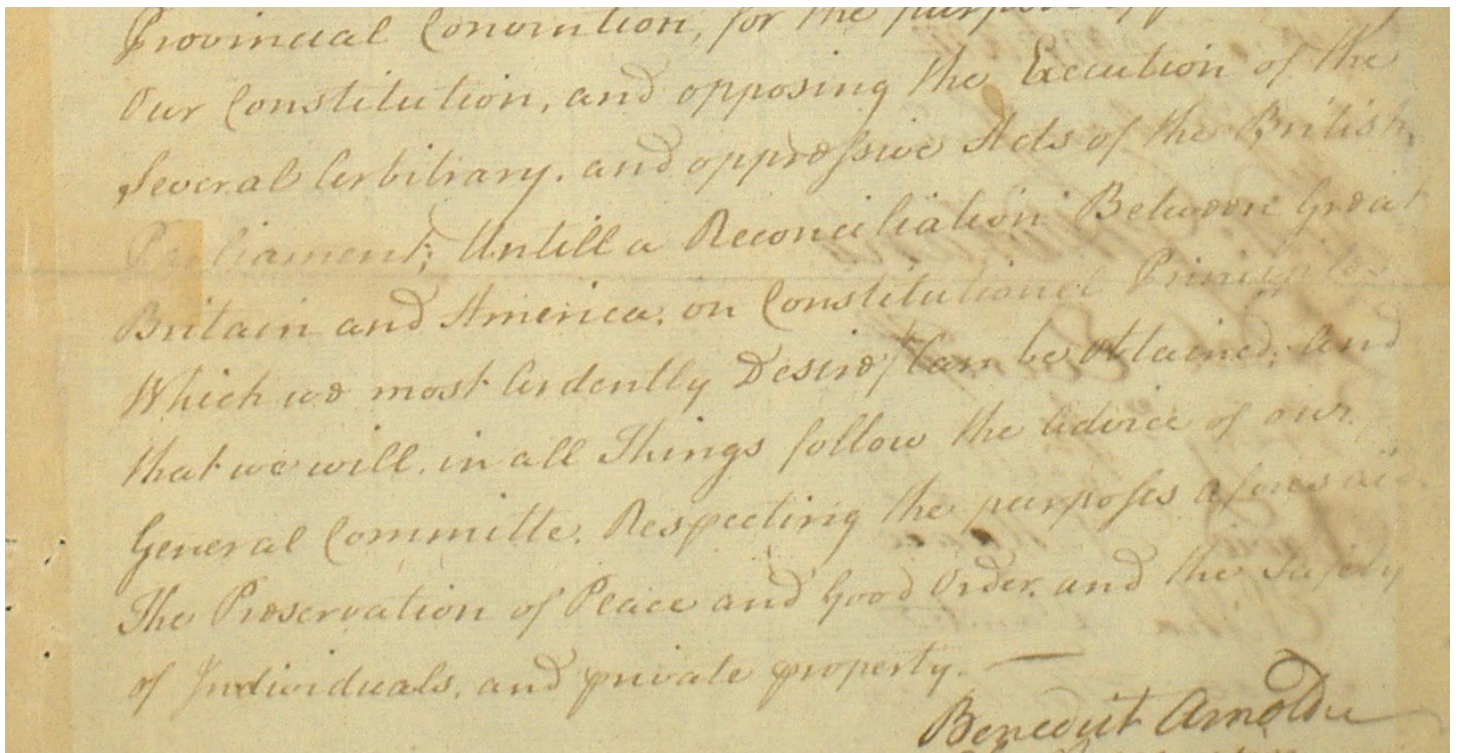 Provincial Convention, for the purpose of
Our Constitution, and opposing the Execution of the
Several Arbitrary, and oppressive Acts of the British
Parliament; Untill a Reconciliation Between Great
Britain and America, on Constitutional Principles
Which we most Ardently Desire, Can be Obtained; And
that we will, in all Things follow the Advice of our
General Committe, Respecting the purposes aforesaid
The Preservation of Peace and Good Order, and the Safety
of Individuals, and private property.
Benedict Arnold